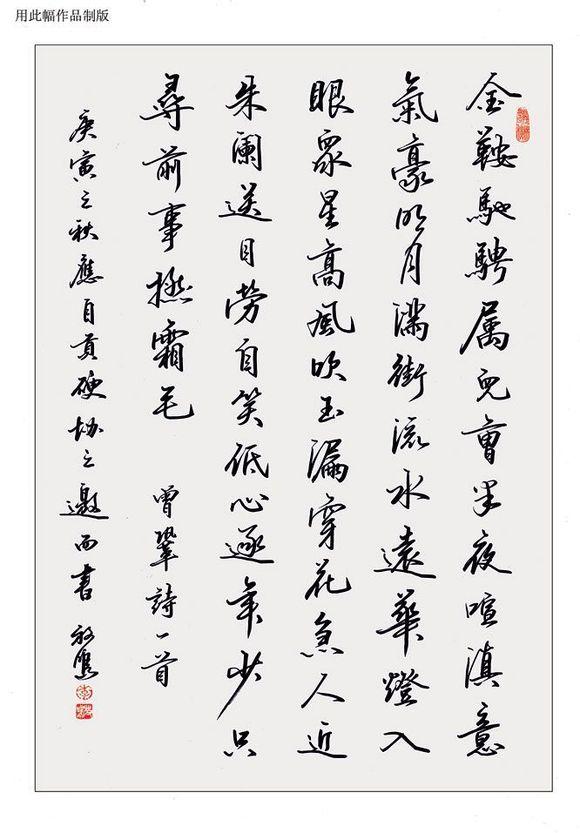 用此幅作品制版
金鞍馳騁属兒曹半夜喧滇意
氣豪明月滿街流水遠華燈入
眼眾星高風吹玉漏穿花急人近
朱闌送目勞自笑低心逐年少只
尋前事撚霜毛 曾鞏詩一首
庚寅之秋應自貢硬协之邀而書